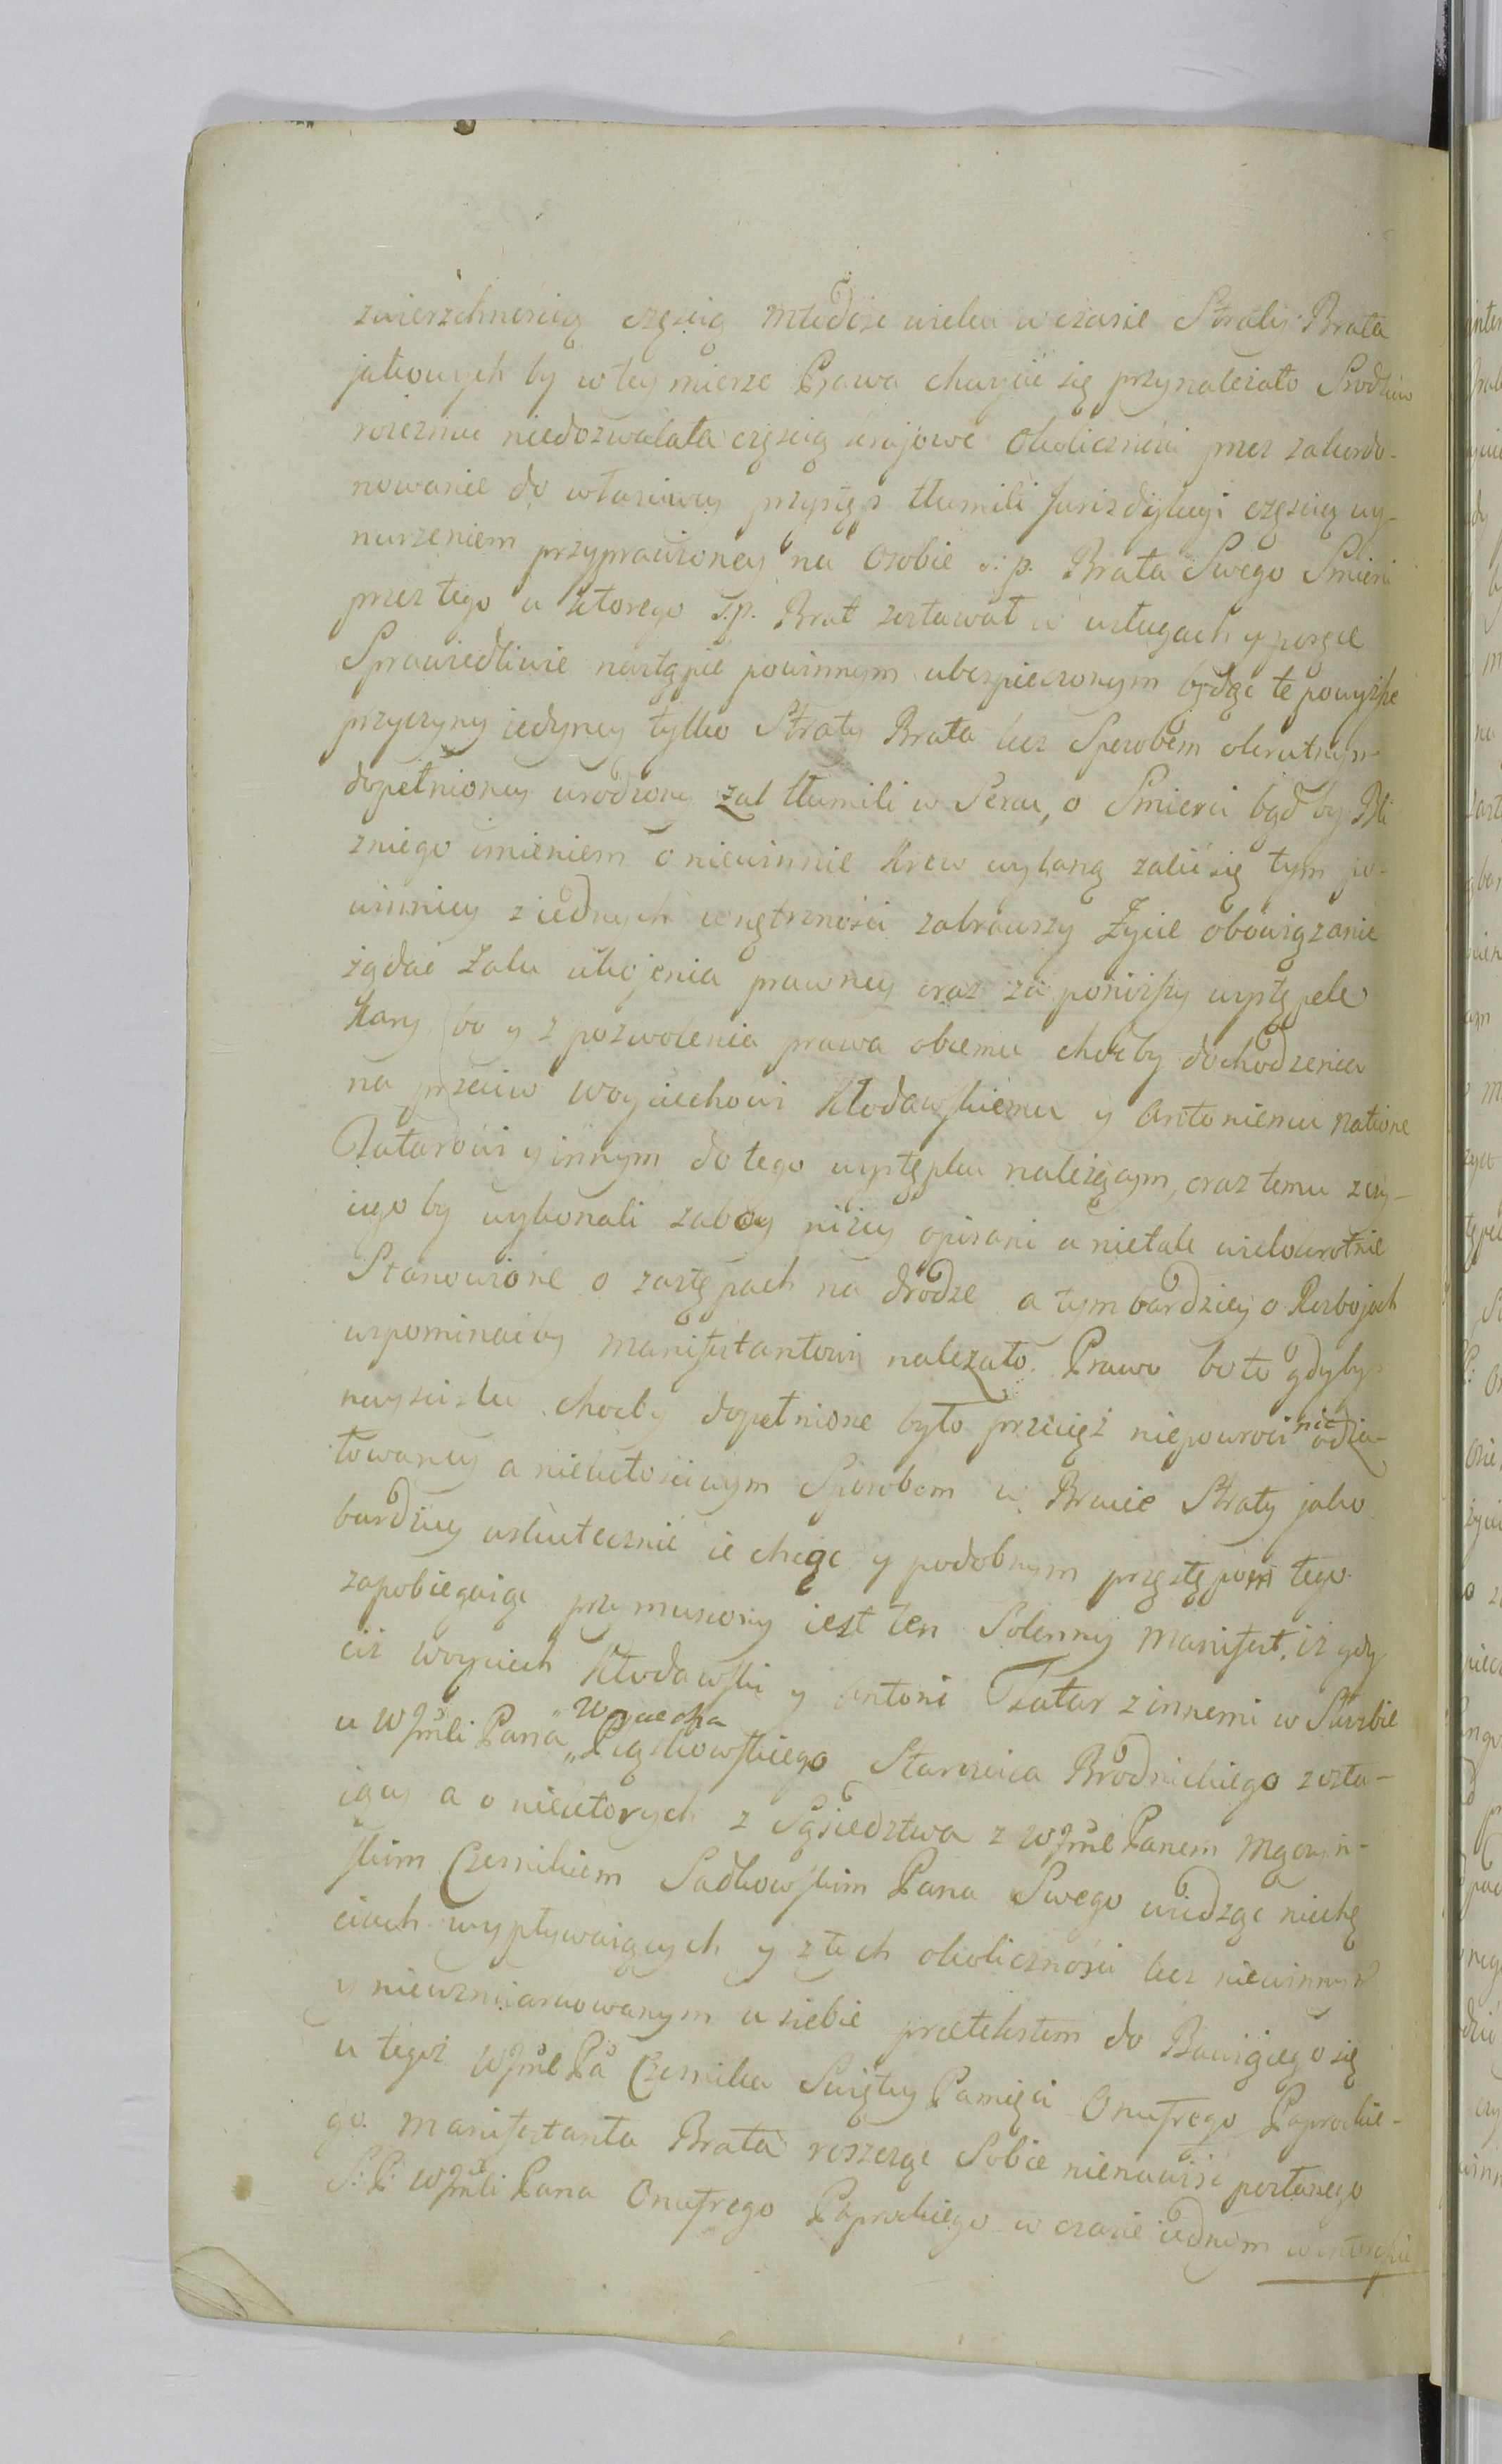 zwierzchnością częścią młodsze wieku w czasie Straty Brata
jakowych by w tey mierze Prawa chwycić się przynależało Srodków
niedozwalała częścią krajowe Okoliczności przez zakordo-
nowanie do własciwey przystęp tłumili Jurisdykcyi częścią wy-
nurzeniem przyprawioney na Osobie s: p. Brata Swego Smierci
przez tego u ktorego s.p. Brat zostawał w usługach y
Sprawiedliwie nastąpić powinnym ubezpieczonym będąc te powyższe
przyczyny iedyney tylko Straty Brata lecz Sposobem okrutnym
dopełnioney urodzony żal tłumili w Sercu, o Smierci bądź by Bli
zniego imieniem o niewinnie Krew wylaną zalić się tym po-
winniey z iednych wnętrzności zabrawszy Życie obowiązanie
żądać Żalu ukojenia prawney oraz za ponizszy występek
Kary, bo y z pozwolenia prawa obcemu chocby dochodzenia
na przeciw Woyciechowi Kłodawskiemu y Antoniemu natione
Tatarowi y innym do tego występku należącym, oraz temu z czy-
iego by wykonali zabóy niżey opisani a nietak wielokrotnie
Stanowione o zastępach na drodze a tym bardziey o Rozbojach
wspominaćby manifestantowi należało. Prawo bo to gdyby
nayscisley chocby dopełnione było przecięż niepowroci nie odża-
łowaney a nielutościwym Sposobem w Bracie Straty jako
bardziey uskutecznić ie chcąc y podobnym przestępom tego
zapobiegaiąc przymuszony iest ten Solenny Manifest, iż gdy
ciż Woyciech Kłodawski y Antoni Tatar z innemi w Służbie
u WJmci Pana „Woyciecha
„Piąskowskiego Starościca Brodnickiego zosta-
iący a o niektorych z Sąsiedztwa z WJmć Panem Mgowiń-
skim Czesnikiem Sadkowskim Pana Swego widząc niechę
ciach wypływaiących y z tych okoliczności lecz niewinnym
y nieuzmiarkowanym u siebie praetekstem do Bawiącego się
u tegoż WJmć Pa Czesnika Swiętey Pamięci Onufrego Paprockie-
go Manifestanta Brata roszcząc Sobie nienawiść posłanego
S: P: WJmci Pana Onufrego Paprockiego w czasie iednym